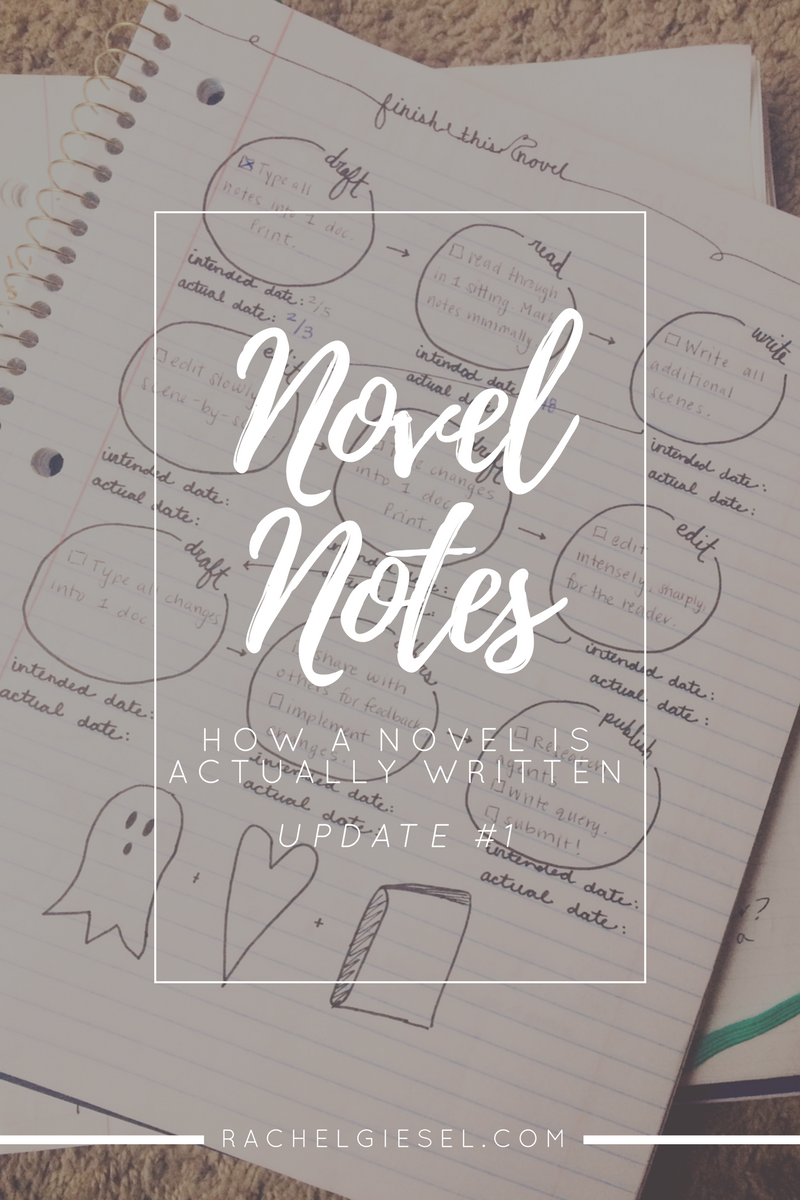 finish this novel
draft
Type all
notes into 1 doc.
Print.
intended date: 2/5
actual date: 2/3
read
read through
in 1 sitting. Mark
notes minimally
intended date
actual
write
Write all
additional
scenes.
intended date:
actual date:
edit
edit slowly
scene-by-
intended date:
actual date:
draft
changes
into 1 doc
Print.
edit
edit
intensely, sharply,
for the reader.
intended date:
actual date:
draft
Type all changes
into 1 doc
intended date:
actual date:
share with
others for feedback
implement
changes.
intended date:
actual date:
publish
Research
agents
Write query.
submit!
intended date:
actual date:
Novel
Notes
HOW A NOVEL IS
ACTUALLY WRITTEN
UPDATE #1
RACHELGIESEL.COM